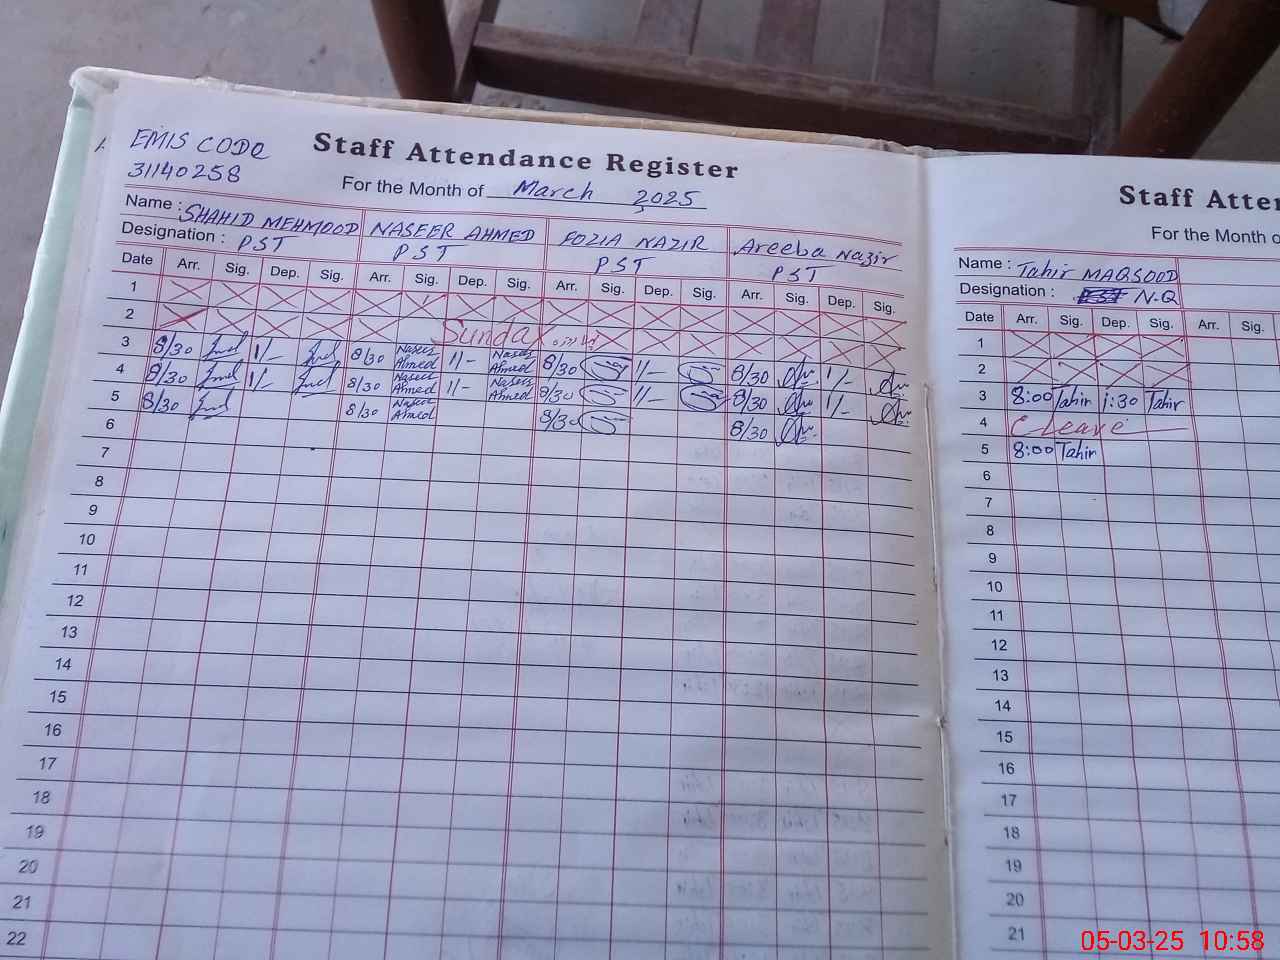 EMIS CODE
31140258
Staff Attendance Register
For the Month of March 2025
Name : SHAHID MEHMOOD NASEER AHMED FOZIA NAZIR Areeba Nazir
Designation : PST PST PST PST
Date Arr. Sig. Dep. Sig. Arr. Sig. Dep. Sig. Arr. Sig. Dep. Sig. Arr. Sig. Dep. Sig.
1
2 Sunday
3 8/30 1/- 8/30 Naseer Ahmed 1/- Naseer Ahmed 8/30 1/- 8/30 1/-
4 8/30 1/- 8/30 Naseer Ahmed 1/- Naseer Ahmed 8/30 1/- 8/30 1/-
5 8/30 8/30 Naseer Ahmed 8/30 8/30
6
7
8
9
10
11
12
13
14
15
16
17
18
19
20
21
22
Staff Atten
For the Month o
Name : Tahir MAQSOOD
Designation : PST N.Q
Date Arr. Sig. Dep. Sig. Arr. Sig.
1
2
3 8:00 Tahir 1:30 Tahir
4 C Leave
5 8:00 Tahir
6
7
8
9
10
11
12
13
14
15
16
17
18
19
20
21
05-03-25 10:58